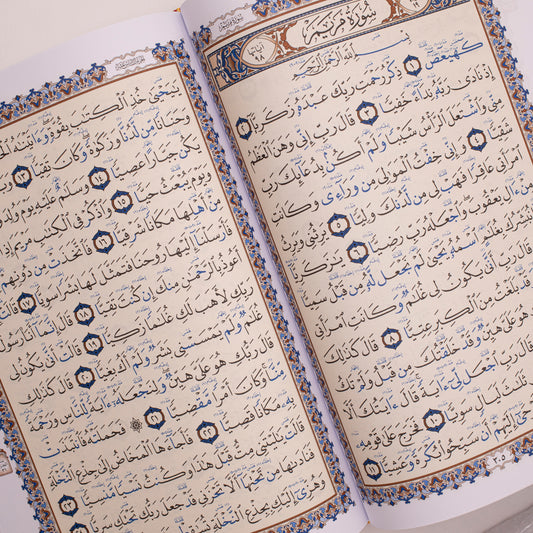 سُورَةُ مَرْيَمَ
بِسْمِ اللَّهِ الرَّحْمَٰنِ الرَّحِيمِ
كٓهيعٓصٓ ١ ذِكْرُ رَحْمَتِ رَبِّكَ عَبْدَهُ زَكَرِيَّا ٢
إِذْ نَادَىٰ رَبَّهُ نِدَآءً خَفِيًّا ٣ قَالَ رَبِّ إِنِّى وَهَنَ الْعَظْمُ
مِنِّى وَاشْتَعَلَ الرَّأْسُ شَيْبًا وَلَمْ أَكُنۢ بِدُعَآئِكَ رَبِّ
شَقِيًّا ٤ وَإِنِّى خِفْتُ الْمَوَٰلِىَ مِن وَرَآءِى وَكَانَتِ
امْرَأَتِى عَاقِرًا فَهَبْ لِى مِن لَّدُنكَ وَلِيًّا ٥ يَرِثُنِى وَيَرِثُ
مِنْ ءَالِ يَعْقُوبَ وَاجْعَلْهُ رَبِّ رَضِيًّا ٦ يَٰزَكَرِيَّآ
نُبَشِّرُكَ بِغُلَٰمٍ اسْمُهُ يَحْيَىٰ لَمْ نَجْعَل لَّهُ مِن قَبْلُ سَمِيًّا
قَالَ رَبِّ أَنَّىٰ يَكُونُ لِى غُلَٰمٌ وَكَانَتِ امْرَأَتِى
وَقَدْ بَلَغْتُ مِنَ الْكِبَرِ عِتِيًّا ٨ قَالَ كَذَٰلِكَ
هُوَ عَلَىَّ هَيِّنٌ وَقَدْ خَلَقْتُكَ مِن قَبْلُ وَلَمْ تَكُ
قَالَ رَبِّ اجْعَل لِّى ءَايَةً قَالَ ءَايَتُكَ أَلَّا
ثَلَٰثَ لَيَالٍ سَوِيًّا ١٠ فَخَرَجَ عَلَىٰ قَوْمِهِ
إِلَيْهِمْ أَن سَبِّحُوا بُكْرَةً وَعَشِيًّا ١١
يَٰيَحْيَىٰ خُذِ الْكِتَٰبَ بِقُوَّةٍ وَءَاتَيْنَٰهُ
وَحَنَانًا مِّن لَّدُنَّا وَزَكَوٰةً وَكَانَ تَقِيًّا ١٣
يَكُن جَبَّارًا عَصِيًّا ١٤ وَسَلَٰمٌ عَلَيْهِ يَوْمَ وُلِدَ
وَيَوْمَ يُبْعَثُ حَيًّا ١٥ وَاذْكُرْ فِى الْكِتَٰبِ مَرْيَمَ إِذِ
مِنْ أَهْلِهَا مَكَانًا شَرْقِيًّا ١٦ فَاتَّخَذَتْ مِن دُونِهِمْ
فَأَرْسَلْنَآ إِلَيْهَا رُوحَنَا فَتَمَثَّلَ لَهَا بَشَرًا سَوِيًّا ١٧
أَعُوذُ بِالرَّحْمَٰنِ مِنكَ إِن كُنتَ تَقِيًّا ١٨ قَالَ إِنَّمَآ أَنَا۠ رَسُولُ
رَبِّكِ لِأَهَبَ لَكِ غُلَٰمًا زَكِيًّا ١٩ قَالَتْ أَنَّىٰ يَكُونُ لِى
غُلَٰمٌ وَلَمْ يَمْسَسْنِى بَشَرٌ وَلَمْ أَكُ بَغِيًّا ٢٠ قَالَ كَذَٰلِكِ
قَالَ رَبُّكِ هُوَ عَلَىَّ هَيِّنٌ وَلِنَجْعَلَهُ ءَايَةً لِّلنَّاسِ وَرَحْمَةً
مِّنَّا وَكَانَ أَمْرًا مَّقْضِيًّا ٢١ فَحَمَلَتْهُ فَانتَبَذَتْ
بِهِ مَكَانًا قَصِيًّا ٢٢ فَأَجَآءَهَا الْمَخَاضُ إِلَىٰ جِذْعِ النَّخْلَةِ
قَالَتْ يَٰلَيْتَنِى مِتُّ قَبْلَ هَٰذَا وَكُنتُ نَسْيًا مَّنسِيًّا ٢٣
فَنَادَىٰهَا مِن تَحْتِهَآ أَلَّا تَحْزَنِى قَدْ جَعَلَ رَبُّكِ تَحْتَكِ سَرِيًّا ٢٤
وَهُزِّىٓ إِلَيْكِ بِجِذْعِ النَّخْلَةِ